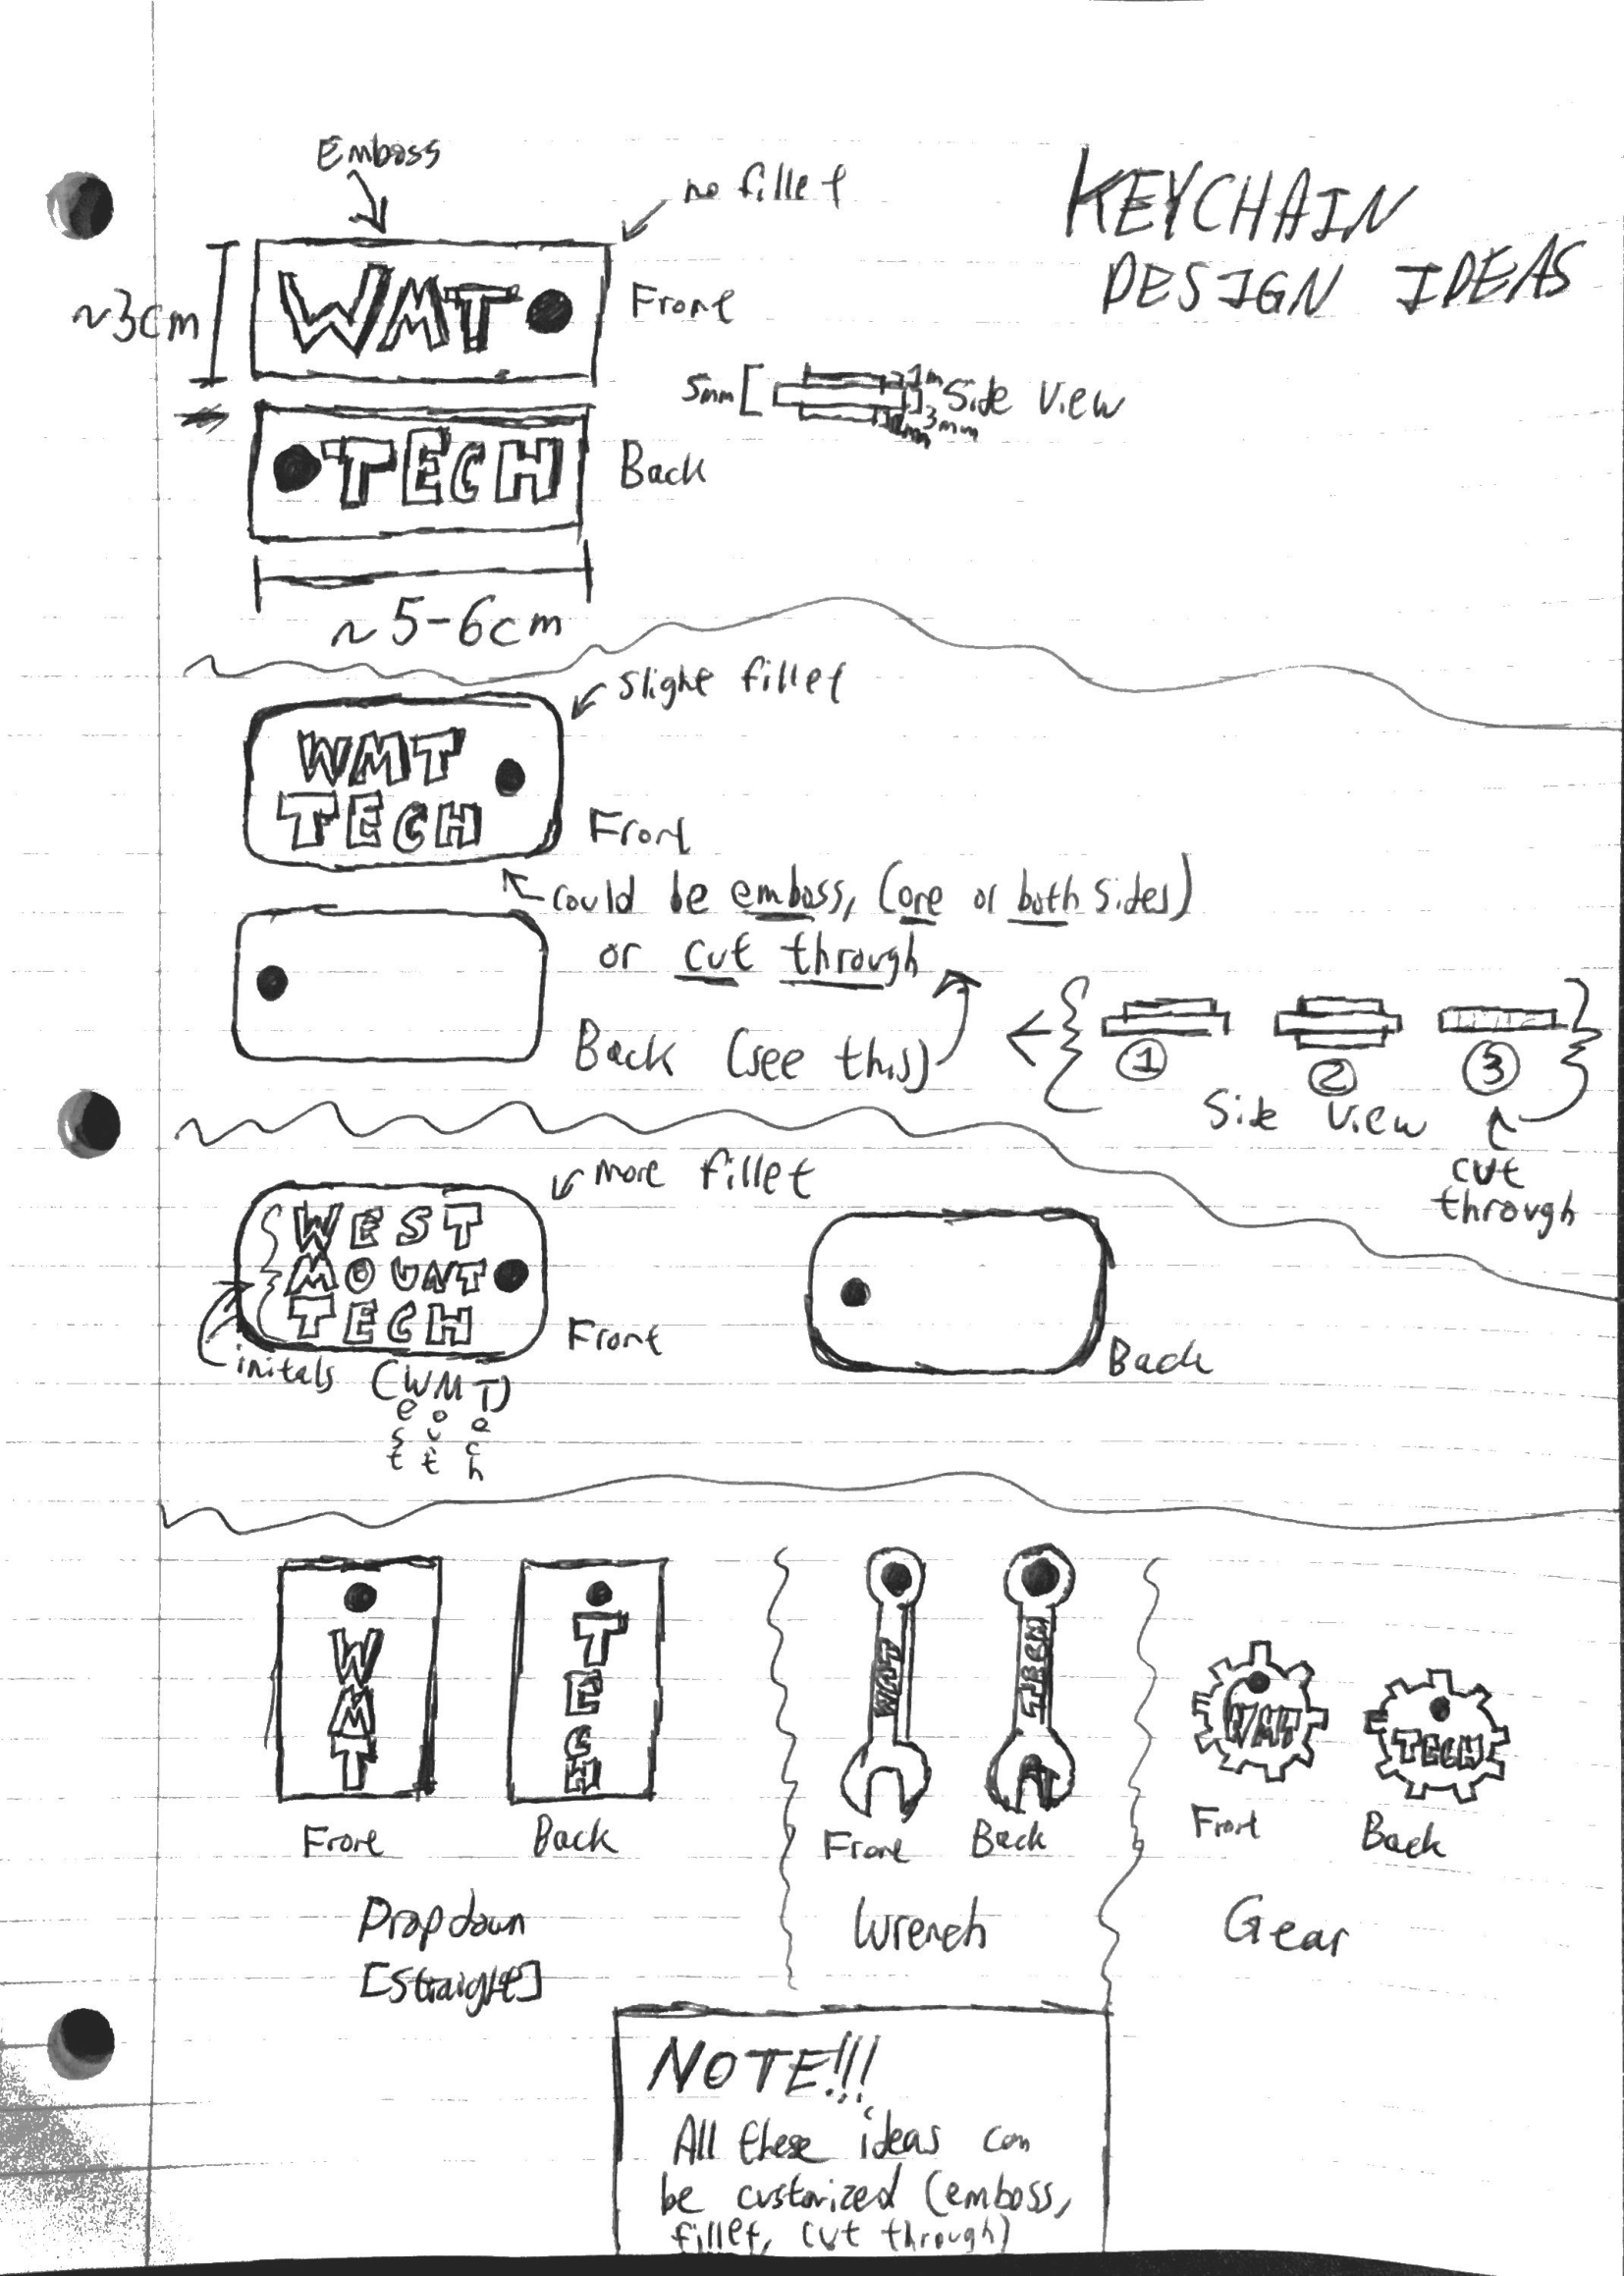 KEYCHAIN
DESIGN IDEAS
Emboss
no fillet
~3cm
WMT
Front
5mm
1m
3mm
Side View
TECH
Back
~5-6cm
Slight fillet
WMT
TECH
Front
could be emboss, (one or both sides)
or cut through
Back (see this)
1
2
3
Side View
cut
through
more fillet
WEST
MOUNT
TECH
Front
Back
initals (WMT)
e o e
s u c
t t h
WMT
TECH
Front
Back
Dropdown
[Straight]
WMT
TECH
Front
Back
Wrench
WMT
TECH
Front
Back
Gear
NOTE!!!
All these ideas can
be customized (emboss,
fillet, cut through)